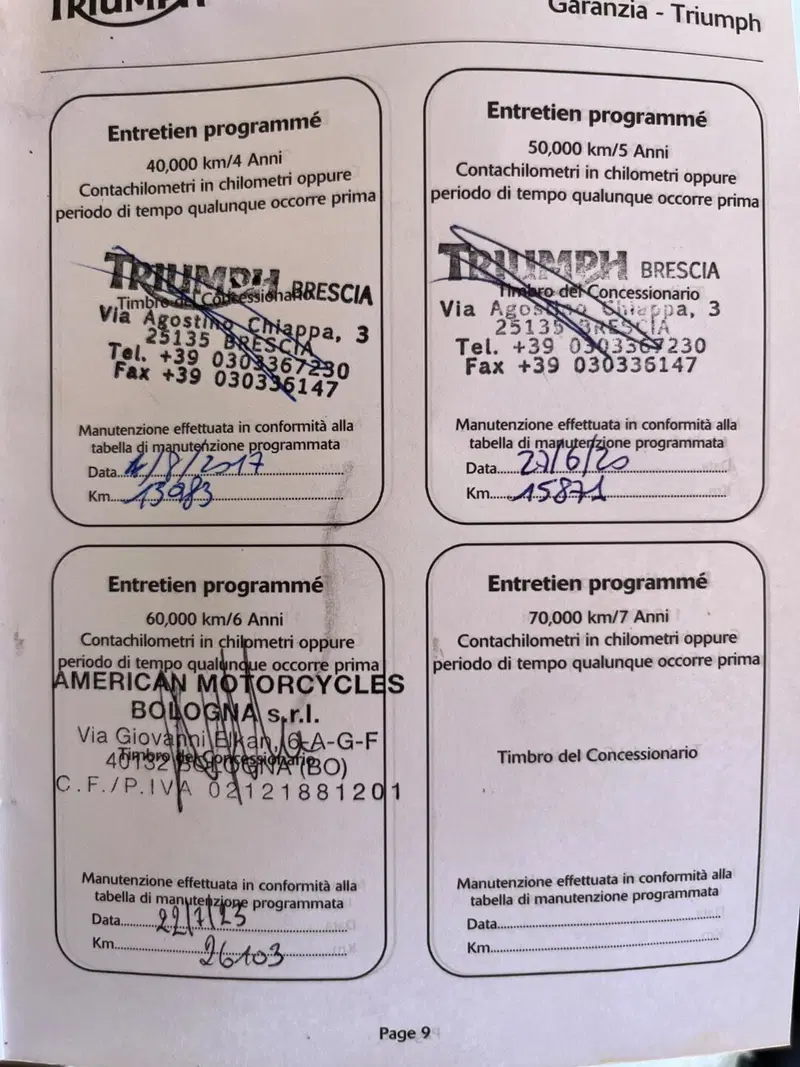 TRIUMPH
Garanzia - Triumph
Entretien programmé
40,000 km/4 Anni
Contachilometri in chilometri oppure
periodo di tempo qualunque occorre prima
TRIUMPH BRESCIA
Timbro del Concessionario
Via Agostino Chiappa, 3
25135 BRESCIA
Tel. +39 0303367230
Fax +39 030336147
Manutenzione effettuata in conformità alla
tabella di manutenzione programmata
Data 1/8/2017
Km 13983
Entretien programmé
50,000 km/5 Anni
Contachilometri in chilometri oppure
periodo di tempo qualunque occorre prima
TRIUMPH BRESCIA
Timbro del Concessionario
Via Agostino Chiappa, 3
25135 BRESCIA
Tel. +39 0303367230
Fax +39 030336147
Manutenzione effettuata in conformità alla
tabella di manutenzione programmata
Data 27/6/20
Km 15871
Entretien programmé
60,000 km/6 Anni
Contachilometri in chilometri oppure
periodo di tempo qualunque occorre prima
AMERICAN MOTORCYCLES
BOLOGNA s.r.l.
Via Giovanni Elkan, 6-A-G-F
Timbro del Concessionario
40132 BOLOGNA (BO)
C.F./P.IVA 02121881201
Manutenzione effettuata in conformità alla
tabella di manutenzione programmata
Data 22/7/23
Km 26103
Entretien programmé
70,000 km/7 Anni
Contachilometri in chilometri oppure
periodo di tempo qualunque occorre prima
Timbro del Concessionario
Manutenzione effettuata in conformità alla
tabella di manutenzione programmata
Data
Km
Page 9